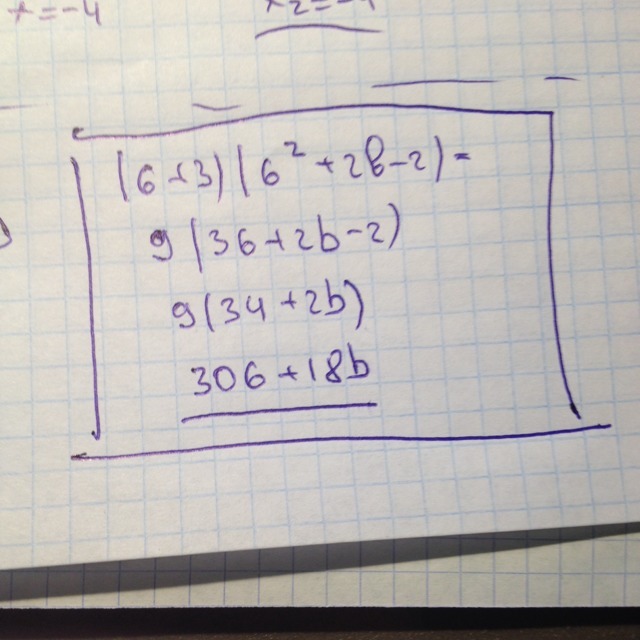 x=-4 x₂=-4
(6+3)(6²+2b-2)=
9(36+2b-2)
9(34+2b)
306+18b